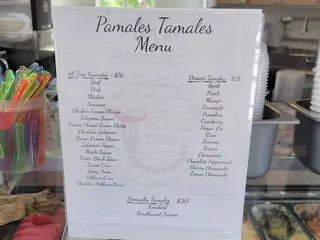 Pamales Tamales
Menu
All Time Favorites - $16
Beef
Pork
Chicken
Sausage
Chicken Cream Cheese
Jalapeno Bacon
Cream Cheese Green Chiles
Cheddar Jalapeno
Bacon Cream Cheese
Jalapeno Pepper
Maple Bacon
Fiesta Black Bean
Sweet Corn
Spicy Pork
Poblano Corn
Cheddar Poblano Corn
Dessert Tamales - $18
Apple
Peach
Mango
Pineapple
Pumpkin
Cranberry
Pecan Pie
Oreo
Smores
Reeses
Cheesecake
Chocolate Peppermint
Cherry Cheesecake
Lemon Cheesecake
Specialty Tamales $20
Smoked
Southwest Queso